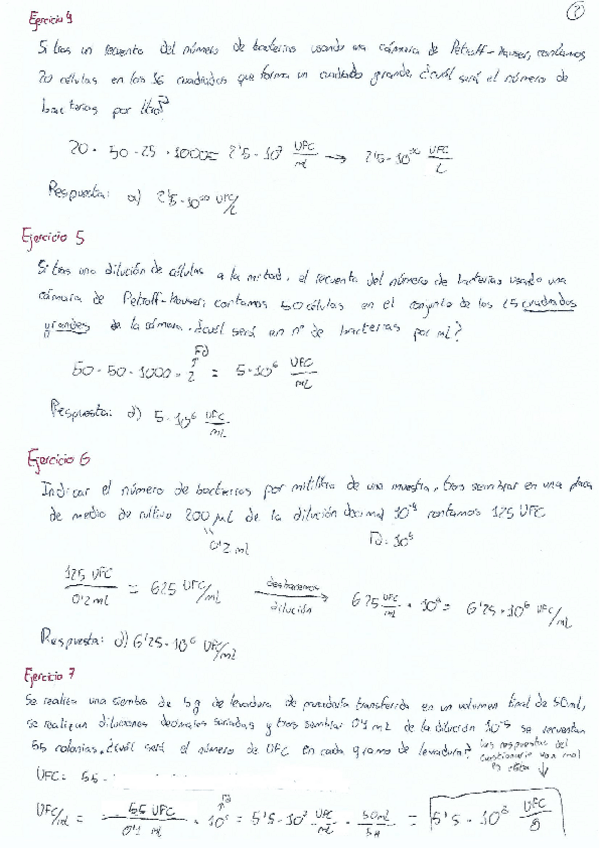 2
Ejercicio 4
Si tras un recuento del número de bacterias usando una cámara de Petroff-Hauser, contamos
20 células en los 16 cuadrados que forma un cuadrado grande, ¿cuál será el número de
bacterias por litro?
20 · 50 · 25 · 1000 = 2'5 · 10⁷ UFC/ml → 2'5 · 10¹⁰ UFC/L
Respuesta: a) 2'5 · 10¹⁰ UFC/L
Ejercicio 5
Si tras una dilución de células a la mitad, el recuento del número de bacterias usando una
cámara de Petroff-Hauser, contamos 50 células en el conjunto de los 25 cuadrados
grandes de la cámara. ¿cuál será un nº de bacterias por ml?
Fd
↑
50 · 50 · 1000 · 2 = 5 · 10⁶ UFC/ml
Respuesta: d) 5 · 10⁶ UFC/ml
Ejercicio 6
Indicar el número de bacterias por mililitro de una muestra, tras sembrar en una placa
de medio de cultivo 200 µL de la dilución decimal 10⁻⁴ contamos 125 UFC
0'2 ml
125 UFC / 0'2 ml = 625 UFC/ml → deshacemos dilución 625 UFC/ml · 10⁴ = 6'25 · 10⁶ UFC/ml
Respuesta: d) 6'25 · 10⁶ UFC/ml
Ejercicio 7
Se realiza una siembra de 5g de levadura de panadería transferida en un volumen final de 50ml,
se realizan diluciones decimales seriadas y tras sembrar 0'1 mL de la dilución 10⁻⁵ se recuentan
55 colonias. ¿cuál será el número de UFC en cada gramo de levadura? Las respuestas del
cuestionario van mal
UFC: 55 ·
Fd
↑
UFC/ml = 55 UFC / 0'1 ml · 10⁵ = 5'5 · 10⁷ UFC/ml · 50ml/5g = 5'5 · 10⁸ UFC/g